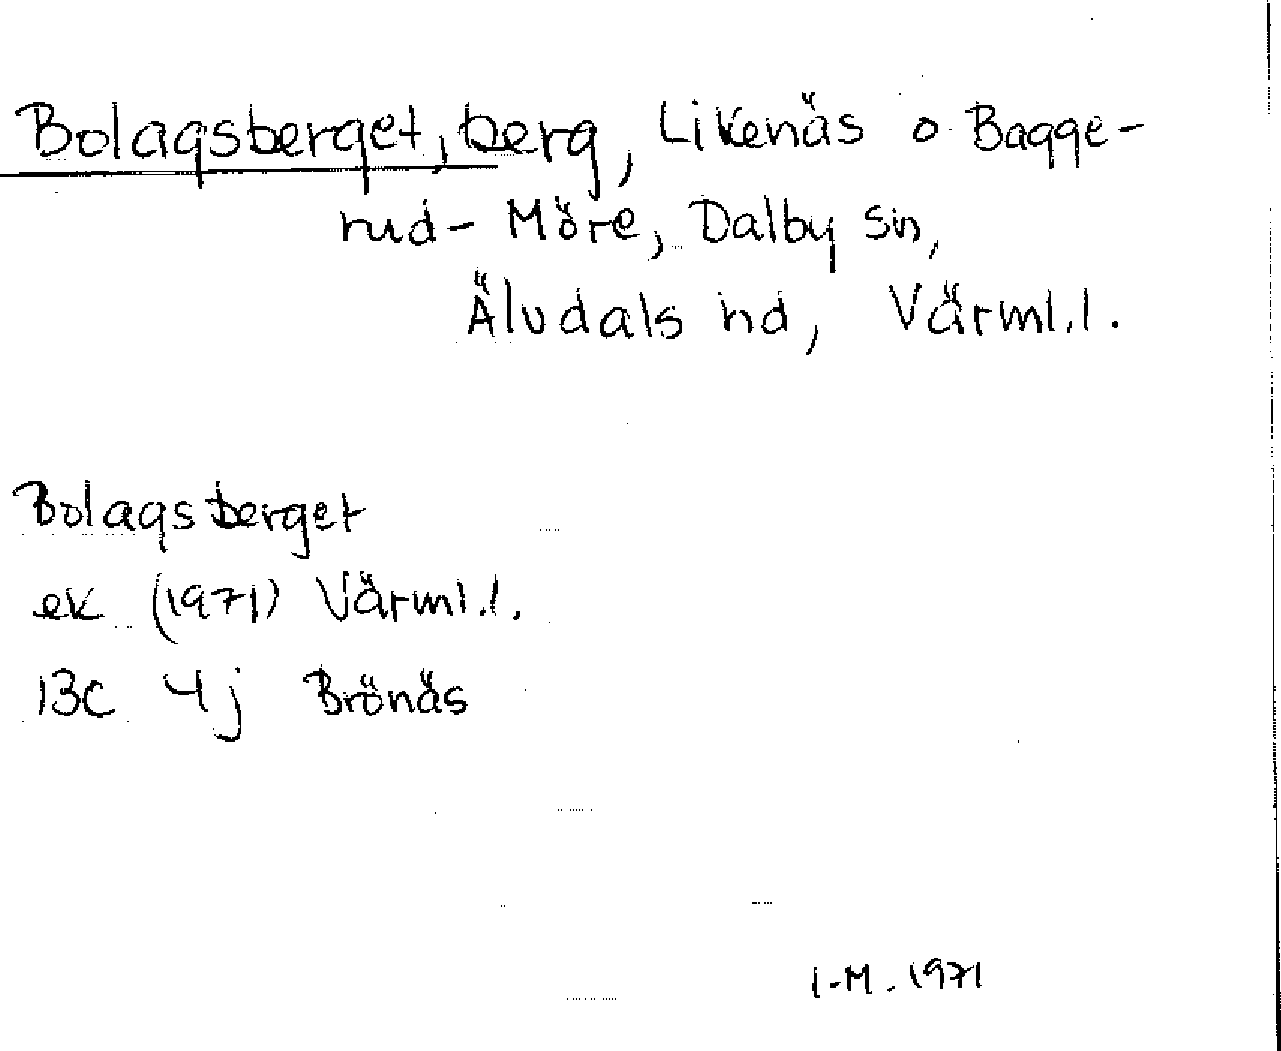 Bolagsberget, berg, Likenäs o Bagge-
rud - Möre, Dalby sn,
Älvdals hd, Värml.l.
Bolagsberget
ek (1971) Värml.l.
13C 4j Brönäs
I-M. 1971